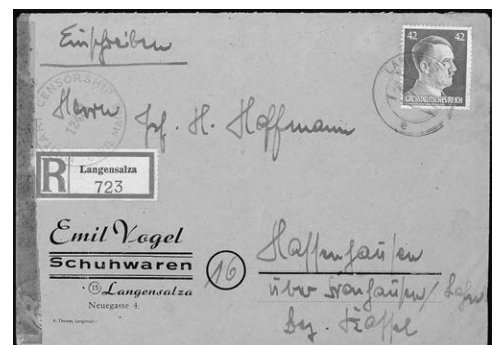 Einschreiben
42 42
GROSSDEUTSCHES REICH
CENSORSHIP
Herrn Joh. H. Hoffmann
R Langensalza
723
Emil Vogel
Schuhwaren
(15) Langensalza
Neuegasse 4.
16
Hassenhausen
über Fronhausen / Lahn
Bez. Kassel